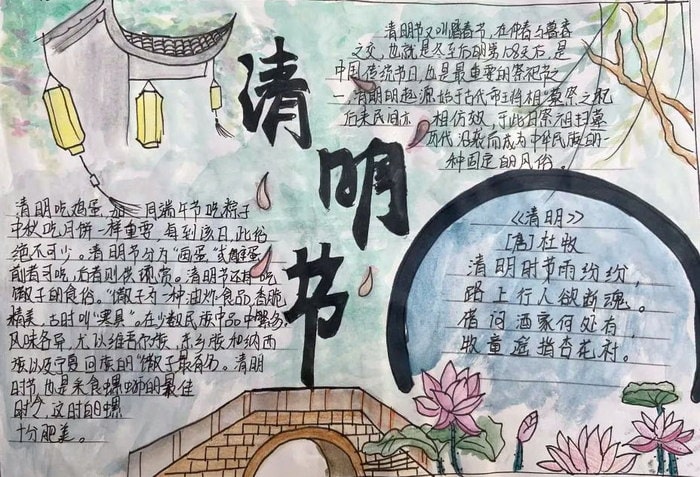 清明节
清明节又叫踏青节，在仲春与暮春
之交，也就是冬至后的第108天后，是
中国传统节日，也是最重要的祭祀节
一，清明的起源始于古代帝王将相"墓祭"之祀
后来民间亦 相仿效，于此日祭祖扫墓
历代沿袭而成为中华民族的一
种固定的风俗。
清明吃鸡蛋，如 同端午节吃粽子
中秋吃月饼一样重要，每到该日，此俗
绝不可少。清明节分为"画蛋"或雕蛋
前者可吃，后者则供观赏。清明节还有吃
馓子的食俗。"馓子为一种油炸食品香脆
精美，古时叫"寒具"。在少数民族中品中繁多，
风味各异，尤以维吾尔族，东乡族和纳西
族以及宁夏回族的"馓子最有名。清明
时节，也是采食螺蛳的最佳
时令，这时的螺
十分肥美。
《清明》
[唐]杜牧
清明时节雨纷纷，
路上行人欲断魂。
借问酒家何处有，
牧童遥指杏花村。